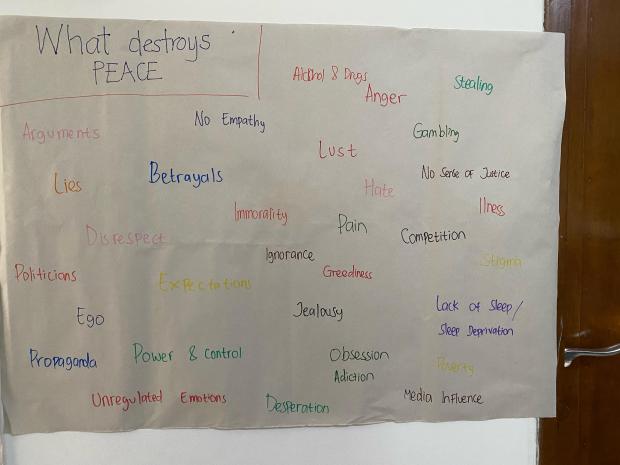 What destroys
PEACE
Alcohol & Drugs
Anger
Stealing
No Empathy
Arguments
Gambling
Lust
No Serse of Justice
Betrayals
Lies
Hate
Immorality
Ilness
Pain
Disrespect
Competition
Ignorance
Stigma
Politicions
Expectations
Greediness
Jealousy
Lack of Sleep/
Sleep Deprivation
Ego
Propaganda
Power & Control
Obsession
Adiction
Poverty
Unregulated Emotions
Desperation
Media Influence